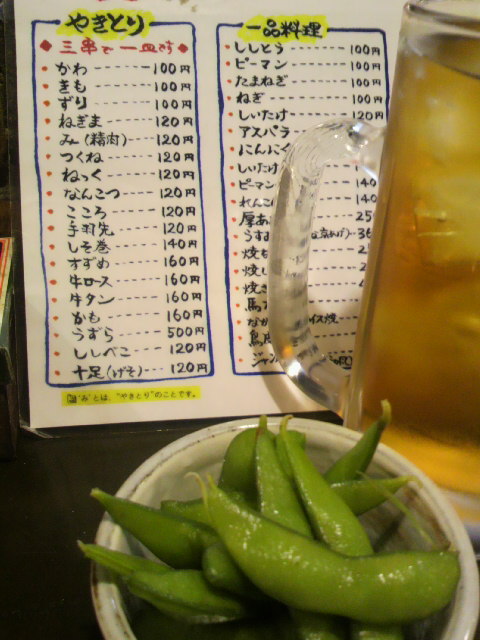 やきとり
◆三串で一皿です◆
・かわ-----100円
・きも-----100円
・ずり-----100円
・ねぎま-----120円
・み(精肉)-----120円
・つくね-----120円
・ねっく-----120円
・なんこつ-----120円
・こころ-----120円
・手羽先-----120円
・しそ巻-----140円
・すずめ-----160円
・牛ロース-----160円
・牛タン-----160円
・かも-----160円
・うずら-----500円
・ししべこ-----120円
・十足(げそ)-----120円
"み"とは、"やきとり"のことです。
一品料理
・ししとう-----100円
・ピーマン-----100円
・たまねぎ-----100円
・ねぎ-----100円
・しいたけ-----120
・アスパラ
・にんにく
・しいたけ
・ピーマン 140
・れんこ 140
・厚あ 25
・うすあ 36
・焼
・焼
・焼き
・馬
・なが イス焼
・鳥
・ジャ